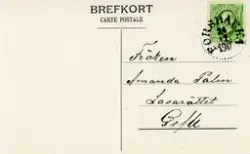 BREFKORT
CARTE POSTALE
Fröken
Amanda Palm
Lasarettet
Gefle